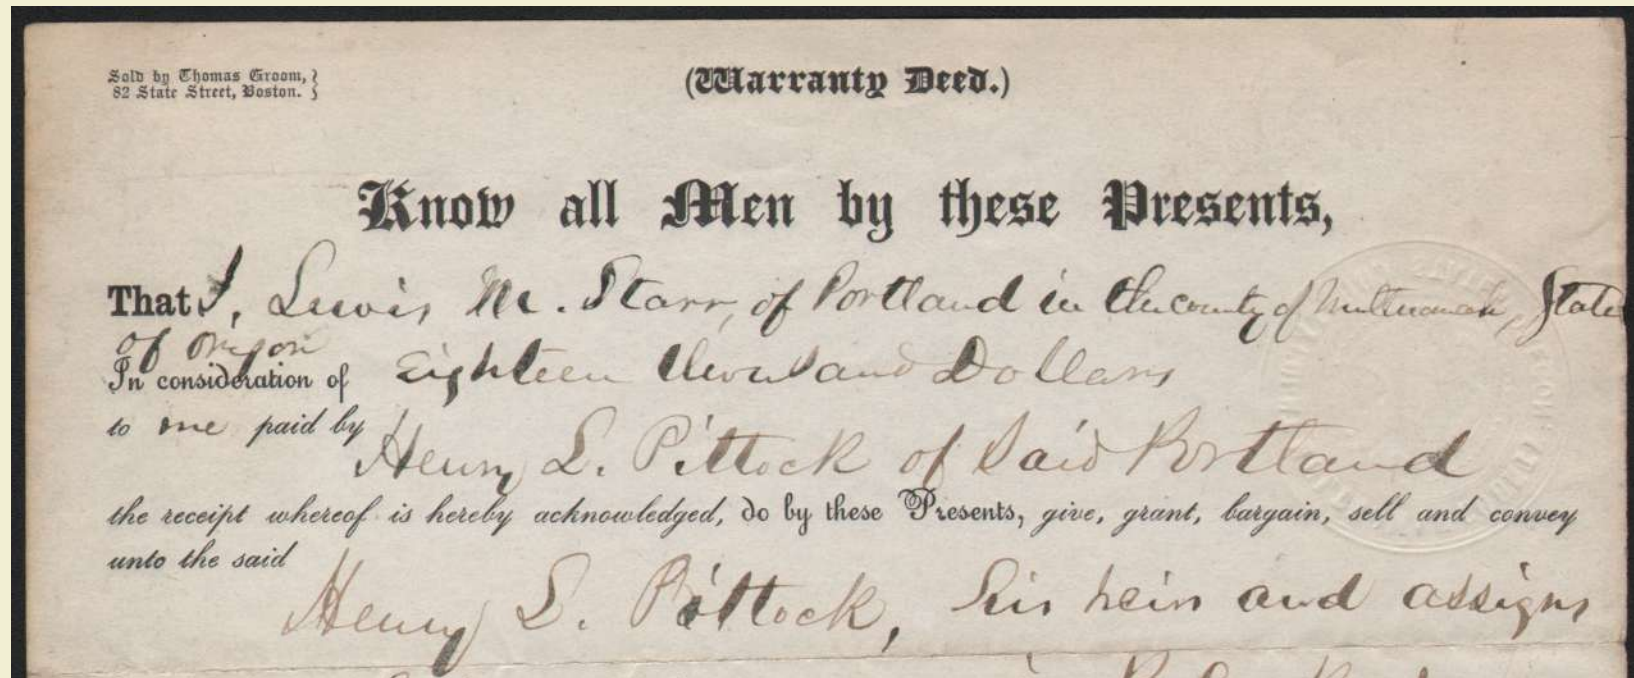 Sold by Thomas Groom,
82 State Street, Boston.
(Warranty Deed.)
Know all Men by these Presents,
That I, Lewis M. Starr, of Portland in the county of Multnomah, State
of Oregon
In consideration of Eighteen thousand Dollars
to me paid by
Henry L. Pittock of said Portland
the receipt whereof is hereby acknowledged, do by these Presents, give, grant, bargain, sell and convey
unto the said
Henry L. Pittock, his heirs and assigns